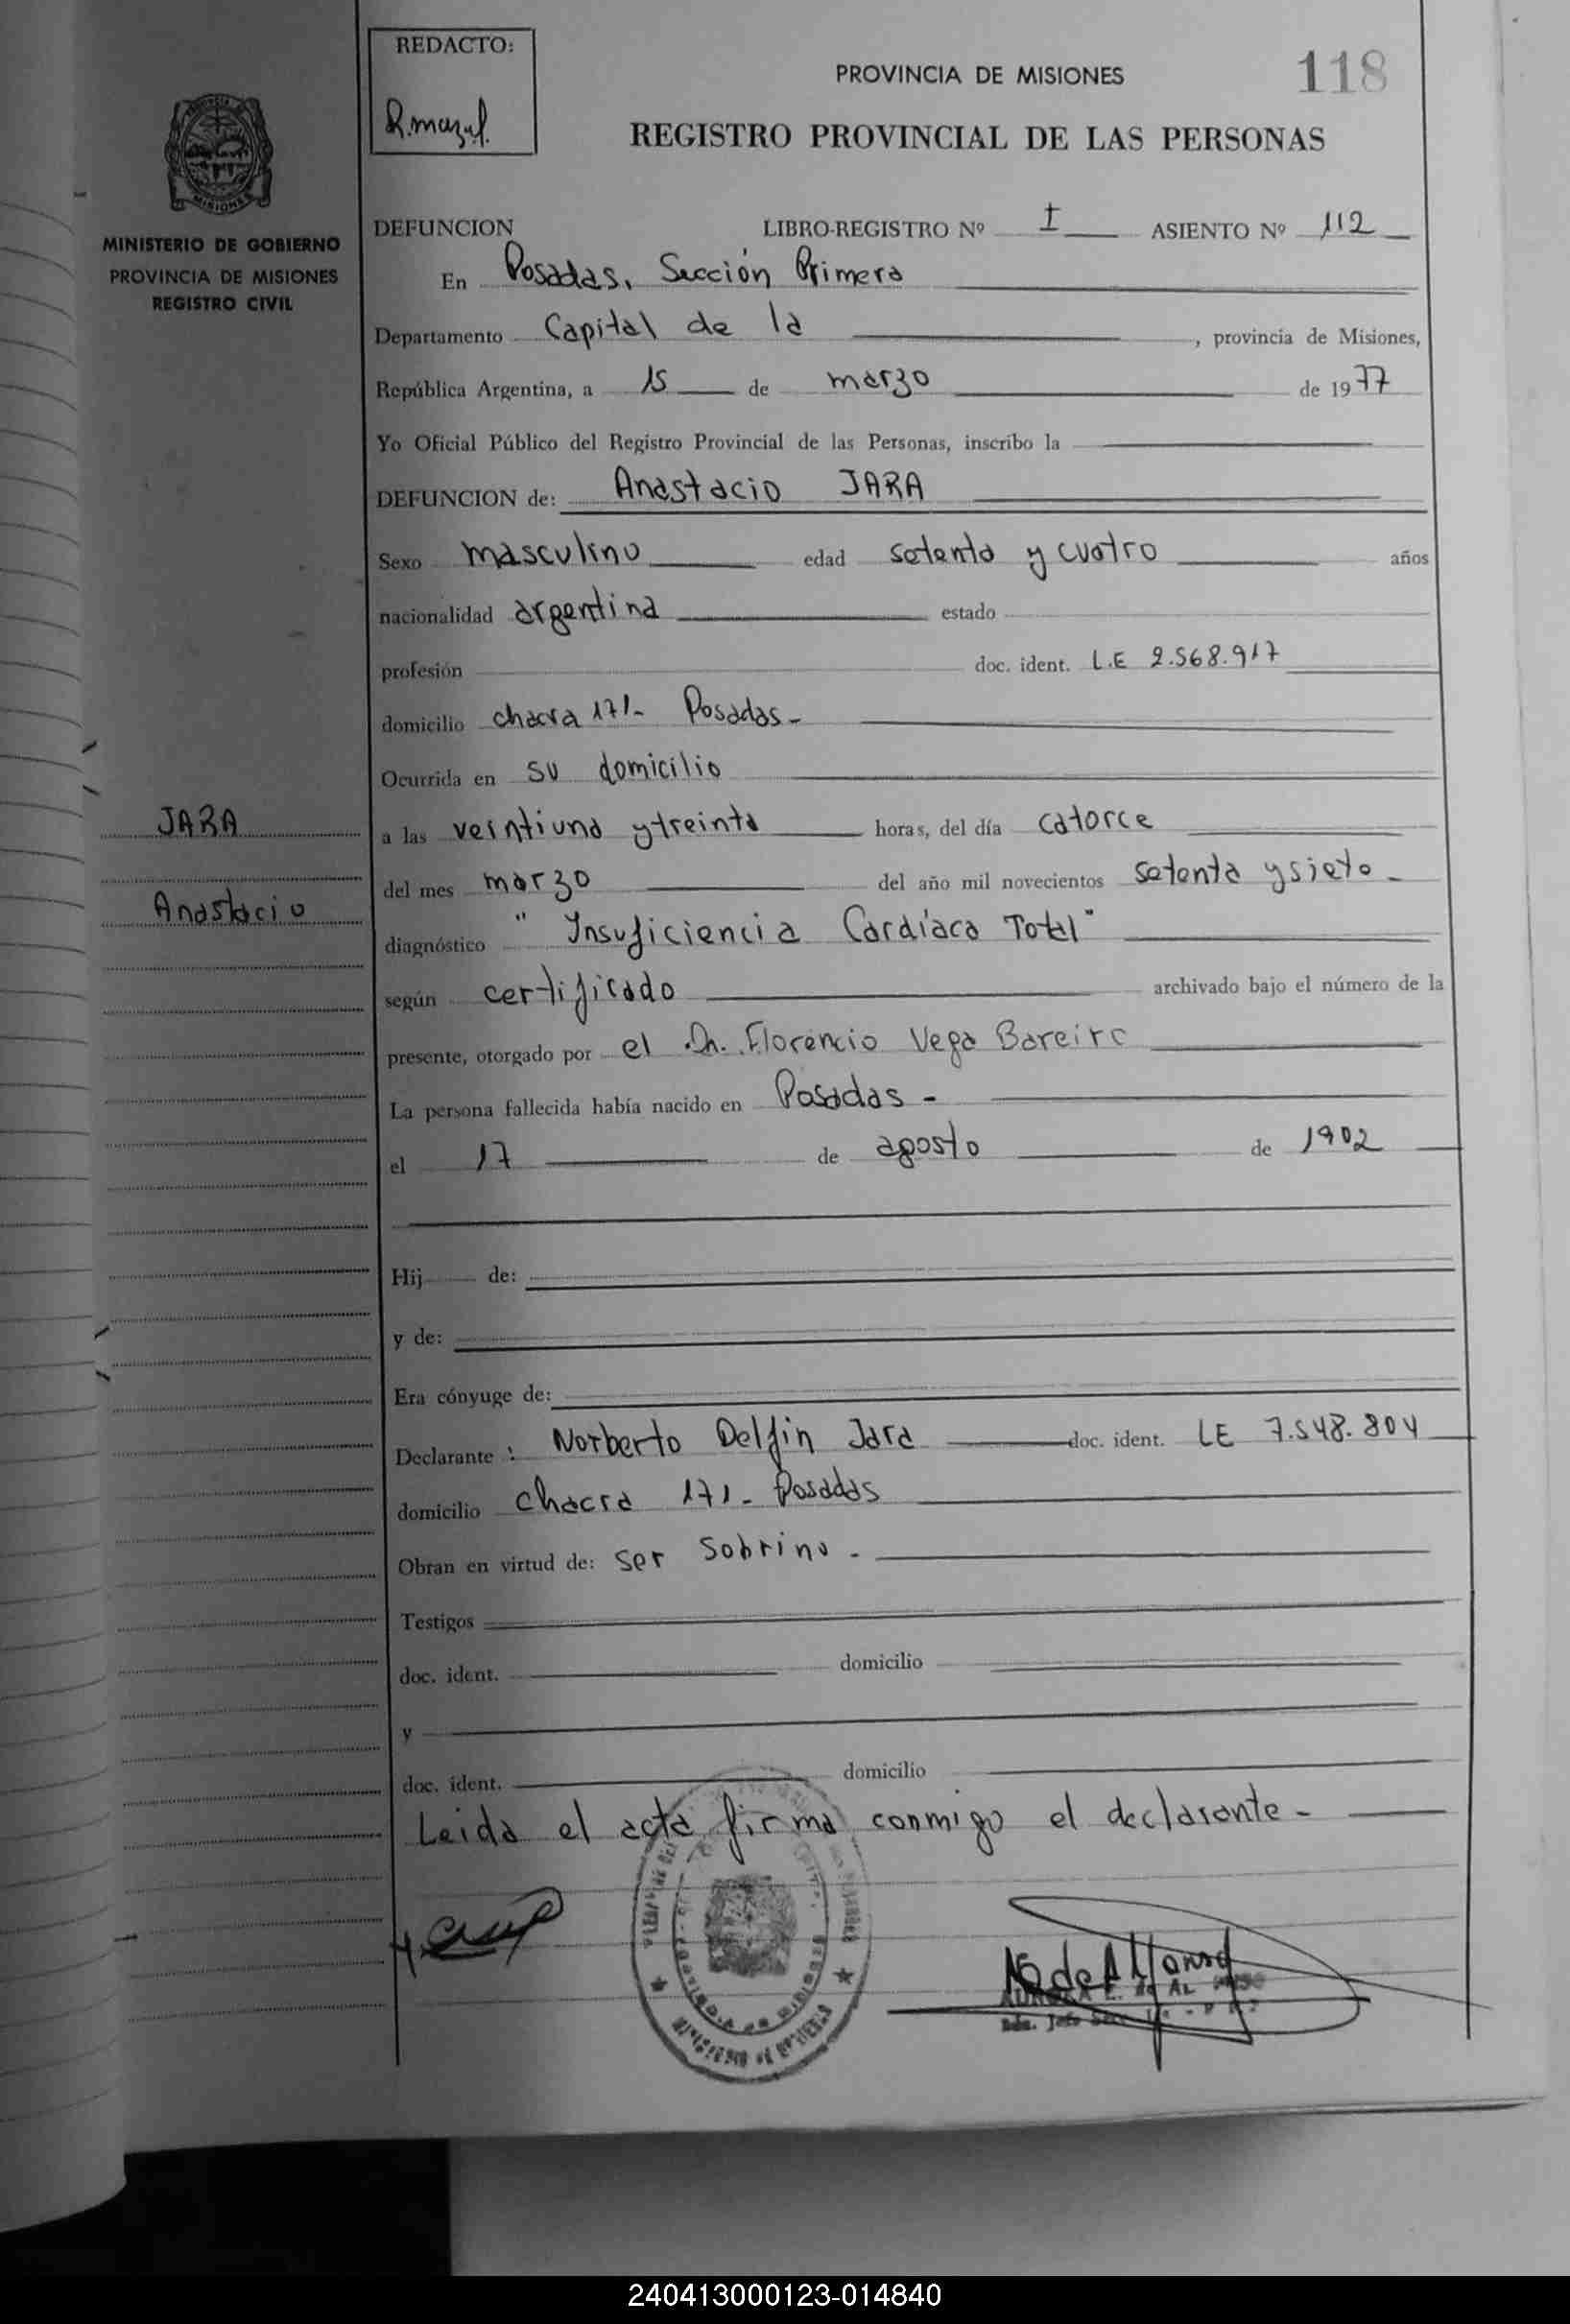 REDACTO:
PROVINCIA DE MISIONES
118
REGISTRO PROVINCIAL DE LAS PERSONAS
MINISTERIO DE GOBIERNO
PROVINCIA DE MISIONES
REGISTRO CIVIL
DEFUNCION LIBRO-REGISTRO Nº I ASIENTO Nº 112
En Posadas, Sección Primera
Departamento Capital de la , provincia de Misiones,
República Argentina, a 15 de marzo de 1977
Yo Oficial Público del Registro Provincial de las Personas, inscribo la
DEFUNCION de: Anastacio JARA
Sexo masculino edad setenta y cuatro años
nacionalidad argentina estado
profesión doc. ident. L.E 2.568.917
domicilio chacra 171- Posadas-
Ocurrida en su domicilio
JARA
a las veintiuna y treinta horas, del día catorce
del mes marzo del año mil novecientos setenta y siete -
Anastacio
diagnóstico "Insuficiencia Cardíaca Total"
según certificado archivado bajo el número de la
presente, otorgado por el Dr. Florencio Vega Bareiro
La persona fallecida había nacido en Posadas -
el 17 de agosto de 1902
Hij de:
y de:
Era cónyuge de:
Declarante: Norberto Delfin Jara doc. ident. LE 7.548.804
domicilio chacra 171- Posadas
Obran en virtud de: ser sobrino -
Testigos
doc. ident. domicilio
y
doc. ident. domicilio
Leida el acta firma conmigo el declarante -
240413000123-014840